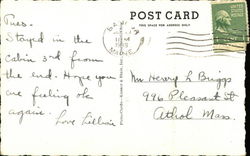 POST CARD
THIS SPACE FOR ADDRESS ONLY
Tues.
Stayed in the
cabin 3rd from
the end. Hope you
are feeling ok
again.
Love Lillian
Mr. Henry L Briggs
996 Pleasant St
Athol Mass.